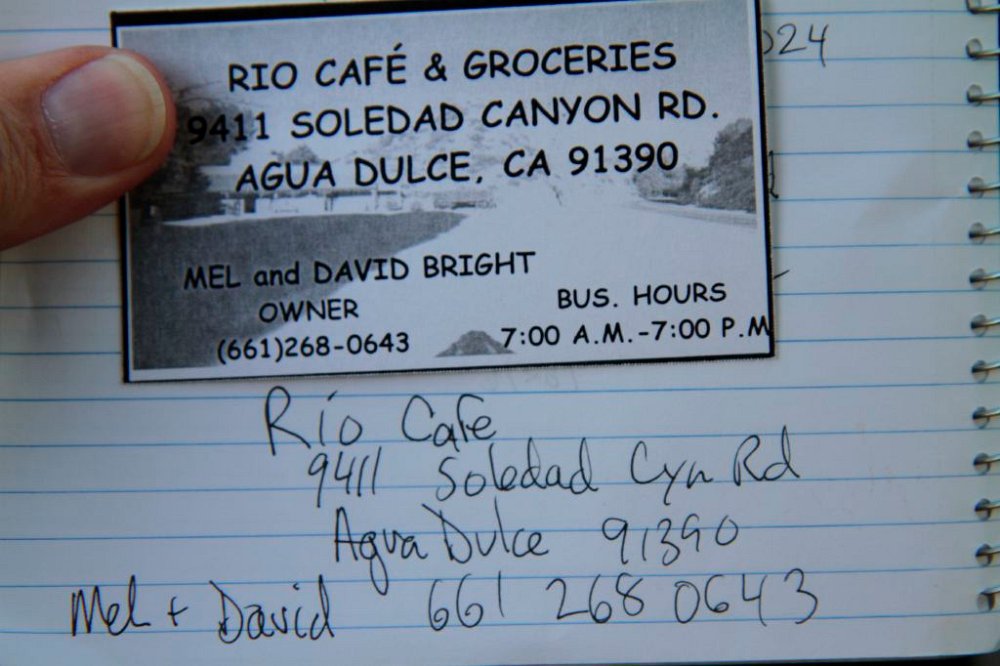 024
RIO CAFÉ & GROCERIES
9411 SOLEDAD CANYON RD.
AGUA DULCE, CA 91390
MEL and DAVID BRIGHT
OWNER
(661)268-0643
BUS. HOURS
7:00 A.M.-7:00 P.M
Rio Cafe
9411 Soledad Cyn Rd
Agua Dulce 91390
Mel + David 661 268 0643